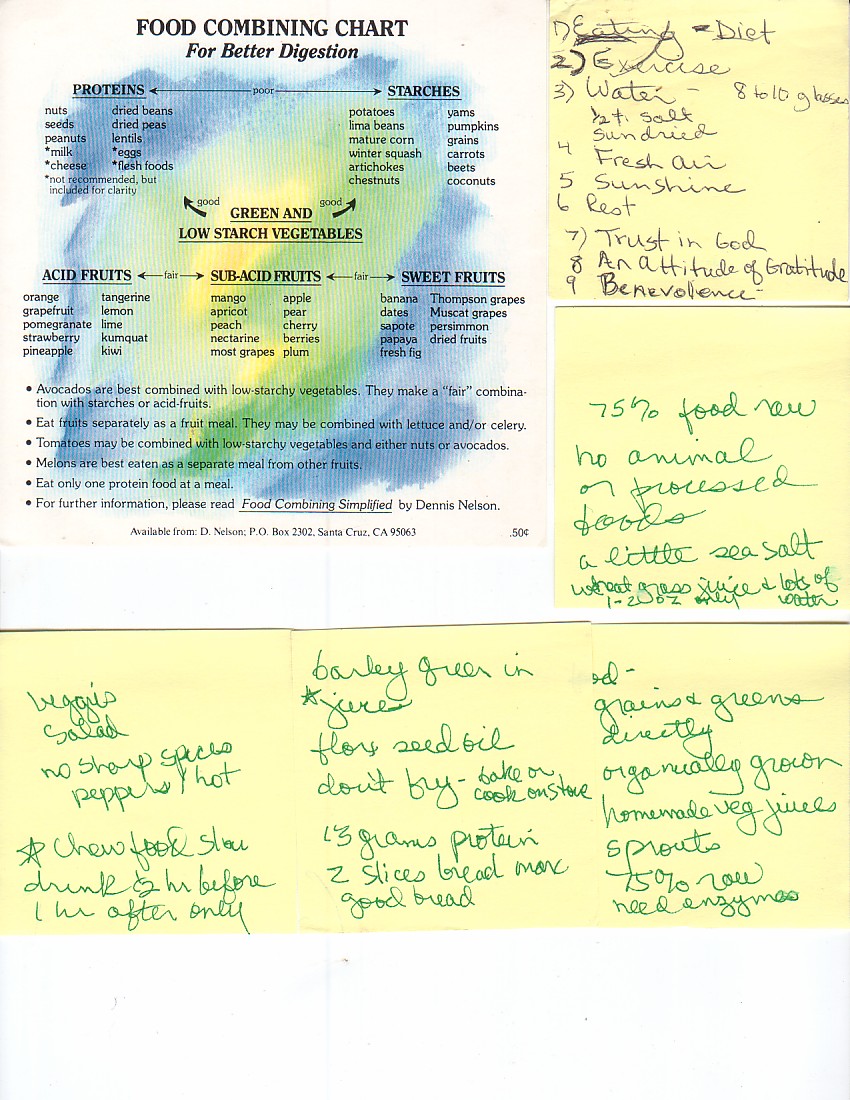 FOOD COMBINING CHART
For Better Digestion
PROTEINS poor STARCHES
nuts dried beans
seeds dried peas
peanuts lentils
*milk *eggs
*cheese *flesh foods
*not recommended, but
included for clarity
potatoes yams
lima beans pumpkins
mature corn grains
winter squash carrots
artichokes beets
chestnuts coconuts
good good
GREEN AND
LOW STARCH VEGETABLES
ACID FRUITS fair SUB-ACID FRUITS fair SWEET FRUITS
orange tangerine
grapefruit lemon
pomegranate lime
strawberry kumquat
pineapple kiwi
mango apple
apricot pear
peach cherry
nectarine berries
most grapes plum
banana Thompson grapes
dates Muscat grapes
sapote persimmon
papaya dried fruits
fresh fig
• Avocados are best combined with low-starchy vegetables. They make a "fair" combina-
tion with starches or acid-fruits.
• Eat fruits separately as a fruit meal. They may be combined with lettuce and/or celery.
• Tomatoes may be combined with low-starchy vegetables and either nuts or avocados.
• Melons are best eaten as a separate meal from other fruits.
• Eat only one protein food at a meal.
• For further information, please read Food Combining Simplified by Dennis Nelson.
Available from: D. Nelson; P.O. Box 2302, Santa Cruz, CA 95063 .50¢
1) Eating - Diet
2) Exercise
3) Water - 8 to 10 glasses
1/2 t. salt
sundried
4 Fresh air
5 Sunshine
6 Rest
7) Trust in God
8 An Attitude of Gratitude
9 Benevolience -
75% food raw
no animal
or processed
foods
a little sea salt
wheat grass juice & lots of
1-2 oz only water
veggis
salad
no sharp spices
peppers / hot
* Chew food slow
drink 1/2 hr before
1 hr after only
barley green in
* juice
flax seed oil
don't fry - bake or
cook on stove
13 grams protein
2 slices bread max
good bread
od -
grains & greens
directly
organically grown
homemade veg juices
sprouts
75% raw
need enzymes